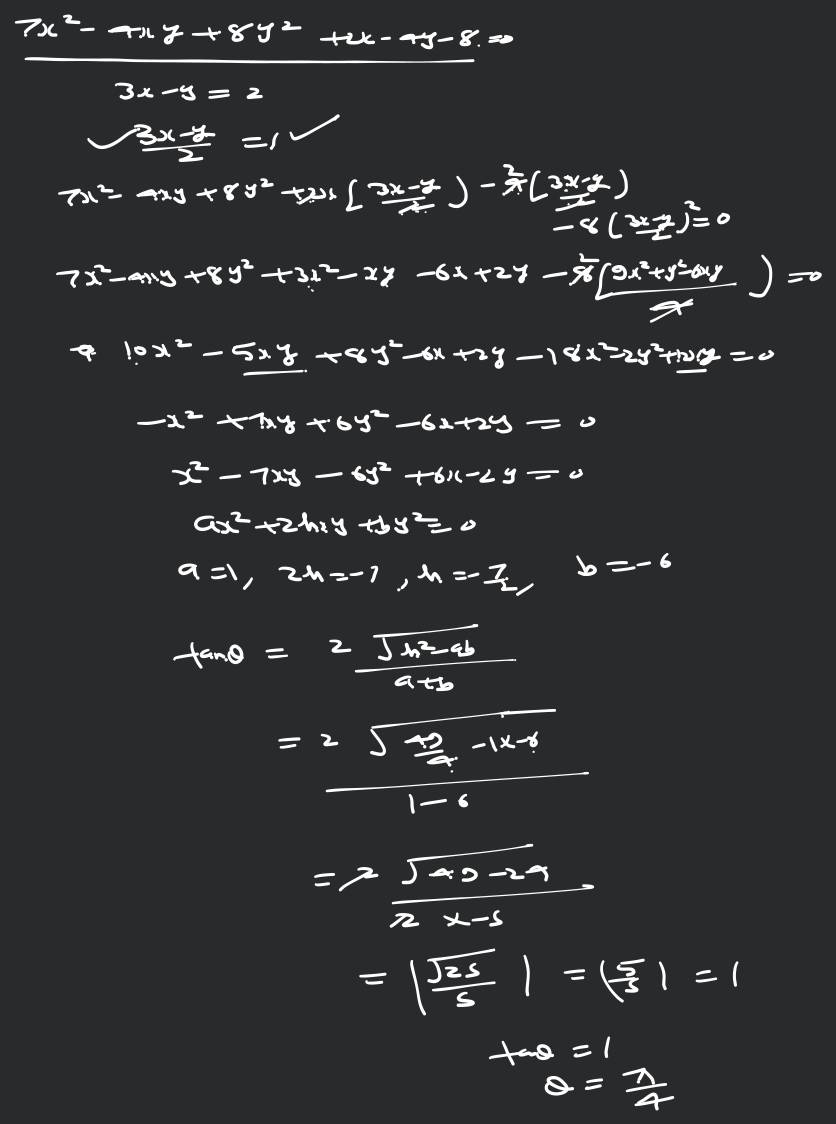 7x² - 4xy + 8y² + 2x - 4y - 8 = 0
3x - y = 2
✓ (3x-y)/2 = 1 ✓
7x² - 4xy + 8y² + 2x [ (3x-y)/2 ] - 4 2 [ (3x-y)/2 )
- 8 ( (3x-y)/2 )² = 0
7x² - 4xy + 8y² + 3x² - xy - 6x + 2y - 8 2 ( (9x² + y² - 6xy)/4 ) = 0
10x² - 5xy + 8y² - 6x + 2y - 18x² - 2y² + 12xy = 0
-x² + 7xy + 6y² - 6x + 2y = 0
x² - 7xy - 6y² + 6x - 2y = 0
ax² + 2hxy + by² = 0
a = 1, 2h = -7, h = -7/2, b = -6
tanθ = 2 √(h² - ab) / (a+b)
= 2 √(49/4 - 1x-6) / (1 - 6)
= 2 √(49 - 24) / (2 x -5)
= | √25 / 5 | = | 5/5 | = 1
tanθ = 1
θ = π/4